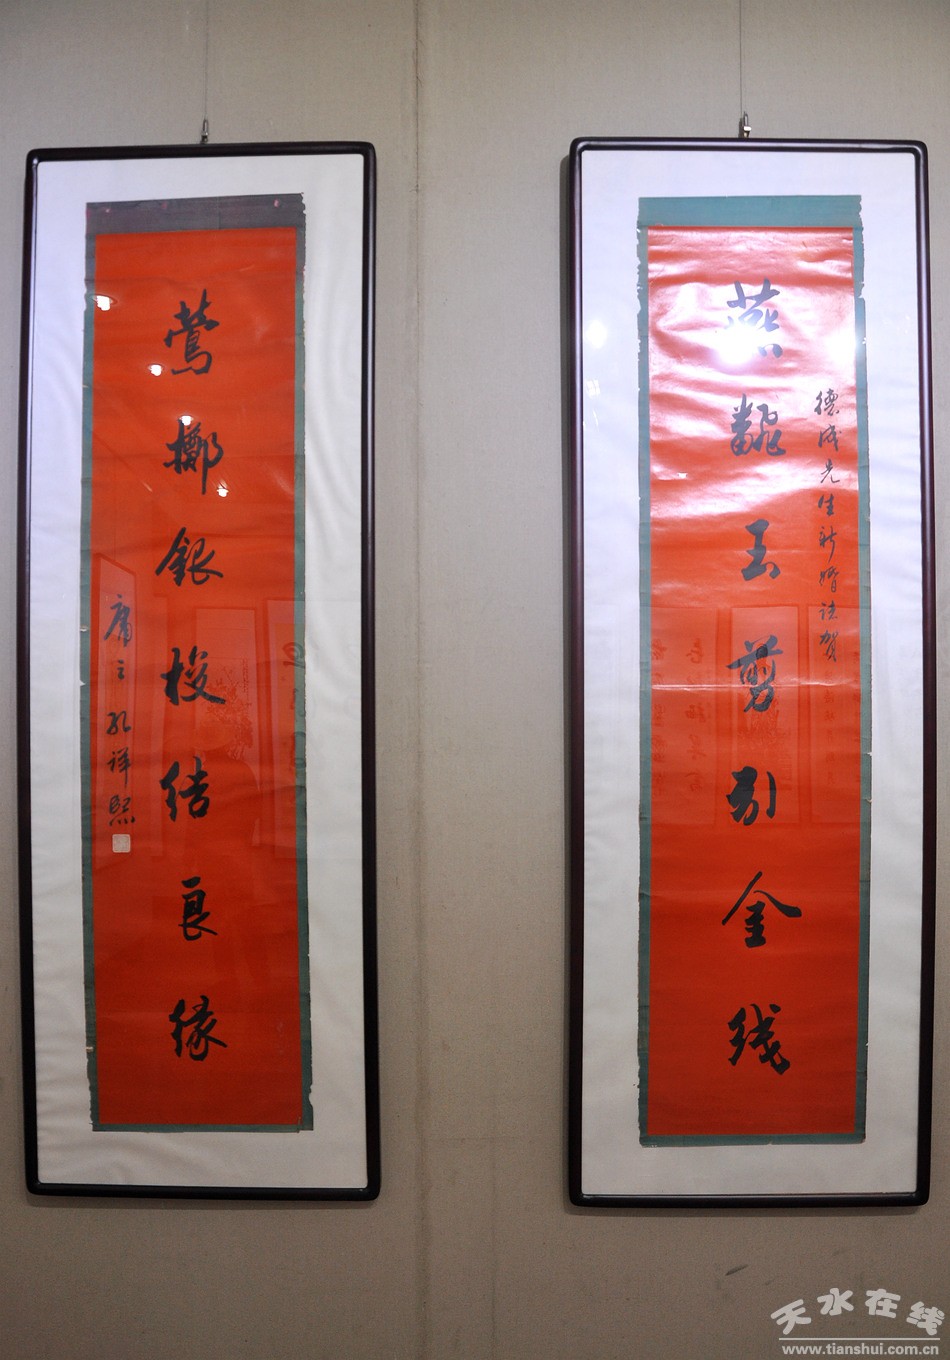 德成先生新婚誌賀
燕翻玉剪引金线
鶯擲銀梭结良缘
庸之孔祥熙
天水在线
www.tianshui.com.cn